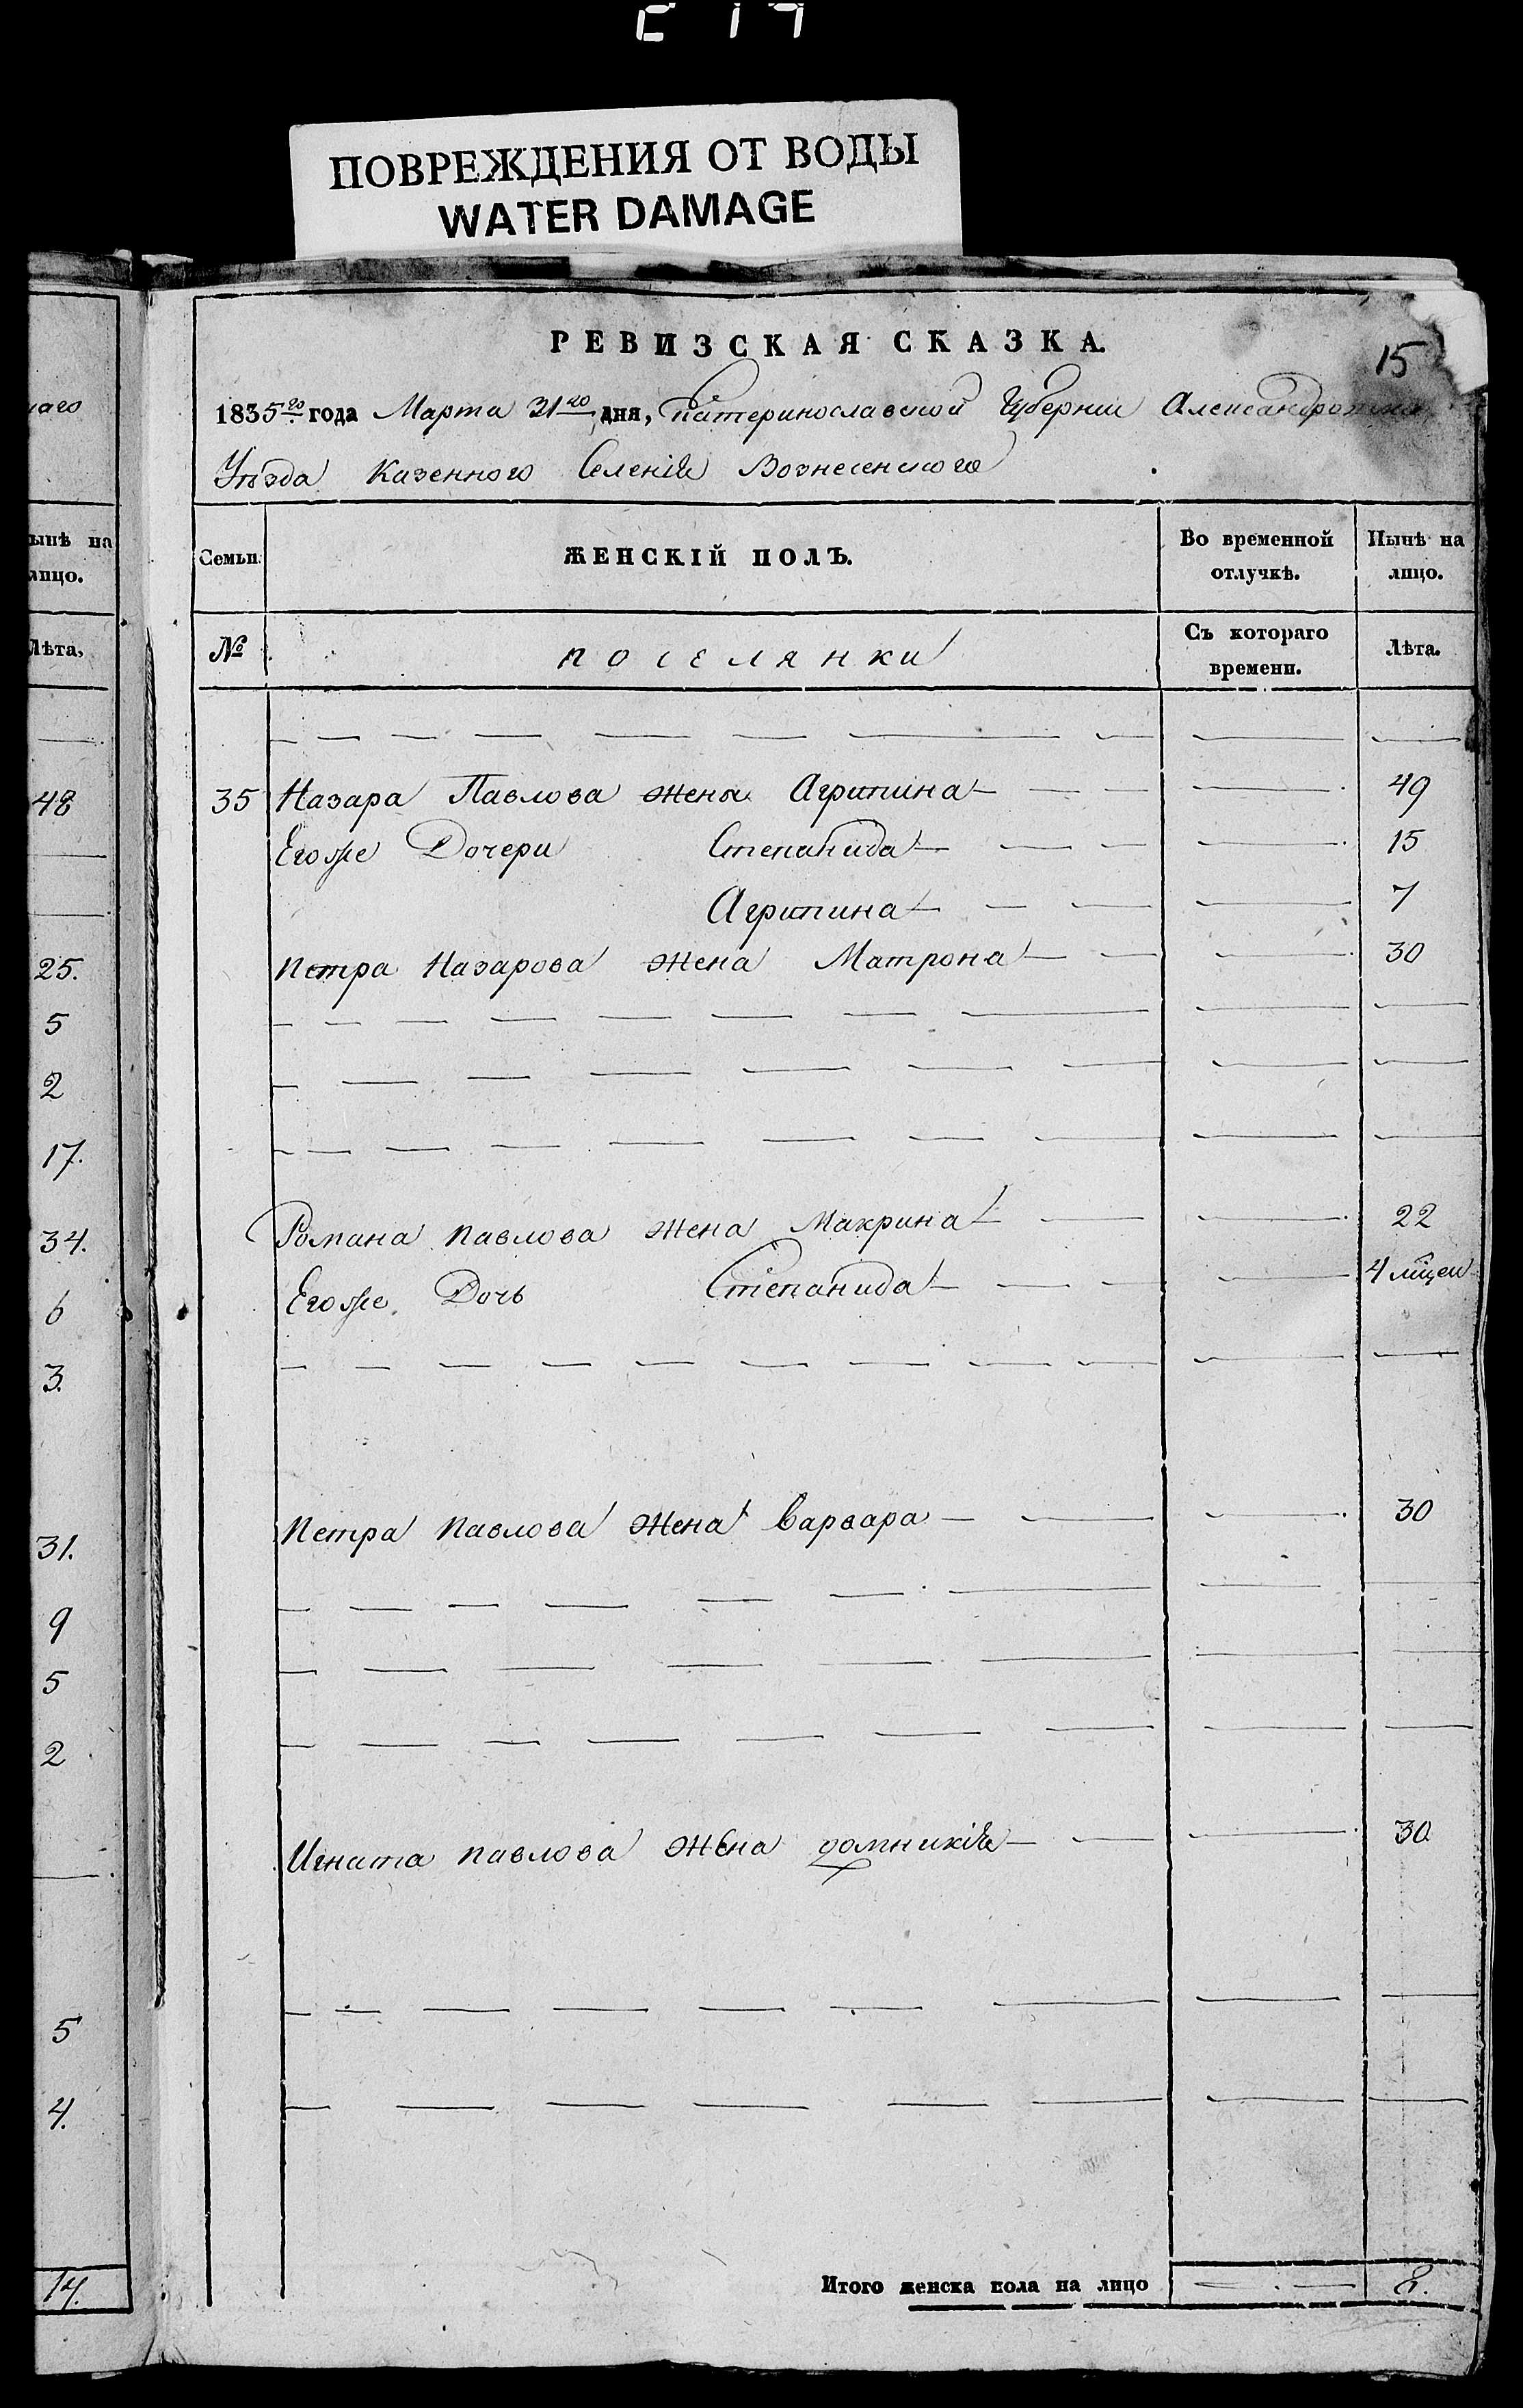 ПОВРЕЖДЕНИЯ ОТ ВОДЫ
WATER DAMAGE
наго
ынѣ на
лицо.
Лѣта,
48
25.
5
2
17.
34.
6
3.
31.
9
5
2
5
4.
14.
РЕВИЗСКАЯ СКАЗКА.
15
1835го года Марта 31го дня, Екатеринославской Губернии
Уѣзда Казенного Селенія Вознесенского
Семьи ЖЕНСКІЙ ПОЛЪ. Во временной отлучкѣ. Нынѣ на лицо.
№ поселянки Съ котораго времени. Лѣта.
35 Назара Павлова жена Агрипина 49
Егоже Дочери Степанида 15
Агрипина 7
Петра Назарова жена Матрона 30
Романа Павлова жена Макрина 22
Егоже Дочь Степанида 4
Петра Павлова жена Варвара 30
Игната Павлова жена Домникія 30
Итого женска пола на лицо 8.